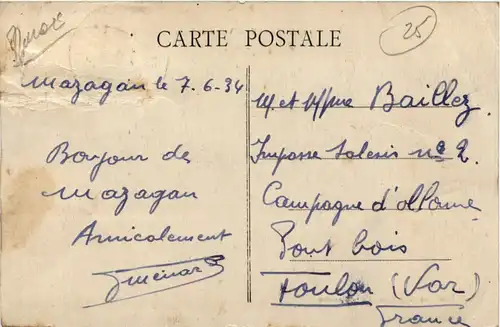 Maroc
25
CARTE POSTALE
Mazagan le 7.6-34
Bonjour de
Mazagan
Amicalement
Mr et Mme Baillez
Impasse Salesis no 2
Campagne d'
Pont bois
Toulon (Var)
France